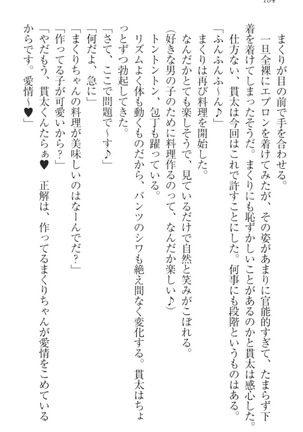 104
まくりが目の前で手を合わせる。
一旦全裸にエプロンを着けてみたが、その姿があまりに官能的すぎて、たまらず下
着を着けてしまったそうだ。まくりにも恥ずかしいことがあるのかと貫太は感心した。
仕方ない、貫太は今回はこれで許すことにした。何事にも段階というものはある。
「ふんふんふ〜ん♪」
まくりは再び料理を開始した。
なんだかとても楽しそうで、見ているだけで自然と笑みがこぼれる。
（好きな男の子のために料理作るのって、なんだか楽しい♪）
トントントン、包丁も躍っている。
リズムよく体も動くものだから、パンツのシワも絶え間なく変化する。貫太はちょ
っとずつ勃起してきた。
「さて、ここで問題で〜す♪」
「何だよ、急に」
「まくりちゃんの料理が美味しいのはなーんでだ？」
「作ってる子が可愛いから？」
「やだもう、貫太くんたらぁ♥　正解は、作ってるまくりちゃんが愛情をこめている
からです。愛情〜♥」